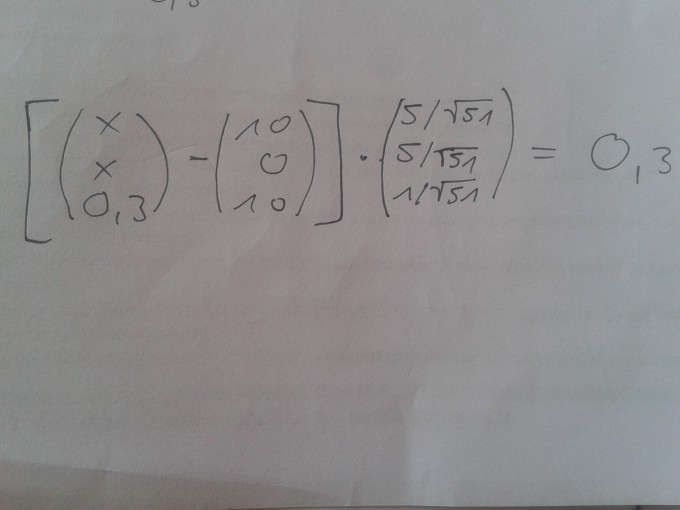 [(x x 0,3) - (10 0 10)] · (5/√51 5/√51 1/√51) = 0,3